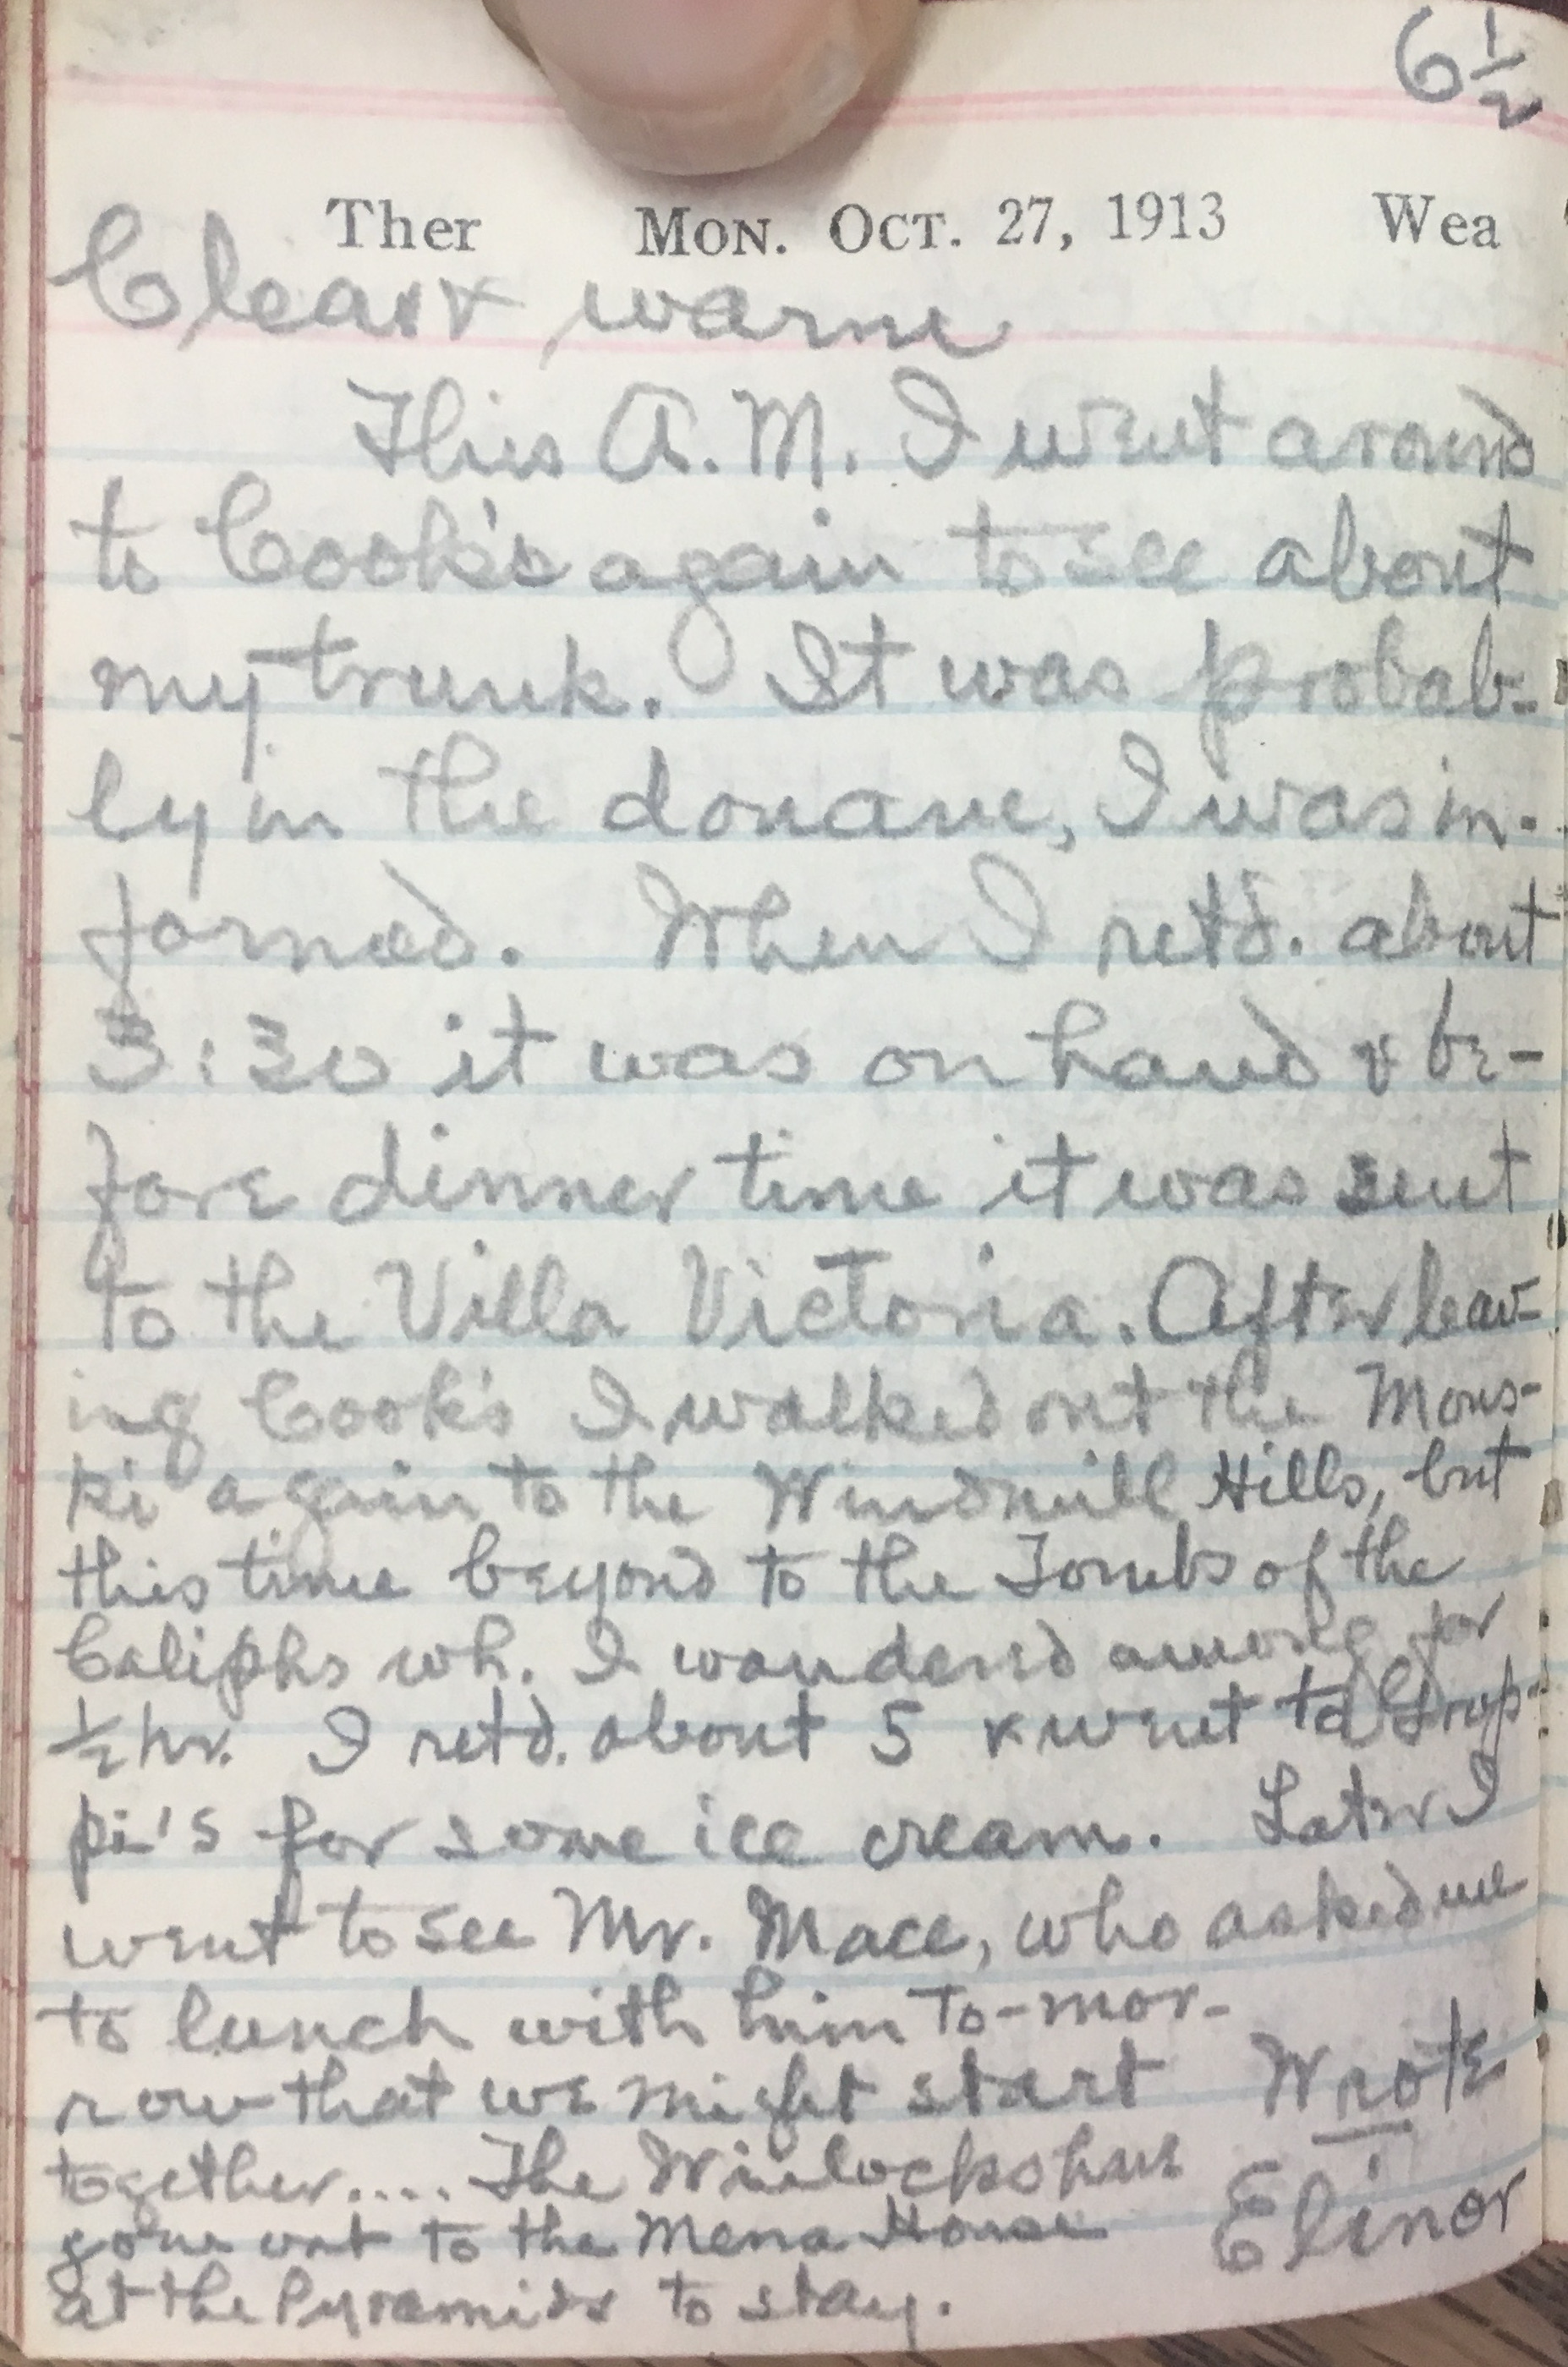 6 1/2
Ther Mon. Oct. 27, 1913 Wea
Clear & warm
This A.M. I went around
to Cook's again to see about
my trunk. It was probab-
ly in the douane, I was in-
formed. When I retd. about
3:30 it was on hand & be-
fore dinner time it was sent
to the Villa Victoria. After leav-
ing Cook's I walked out the Mous-
ki again to the Windmill Hills, but
this time beyond to the Tombs of the
Caliphs wh. I wandered among for
1/2 hr. I retd. about 5 & went to Grop-
pi's for some ice cream. Later I
went to see Mr. Mace, who asked me
to lunch with him to-mor-
row that we might start
together.... The Winlocks have
gone out to the Mena House
at the Pyramids to stay.
Wrote
Elinor